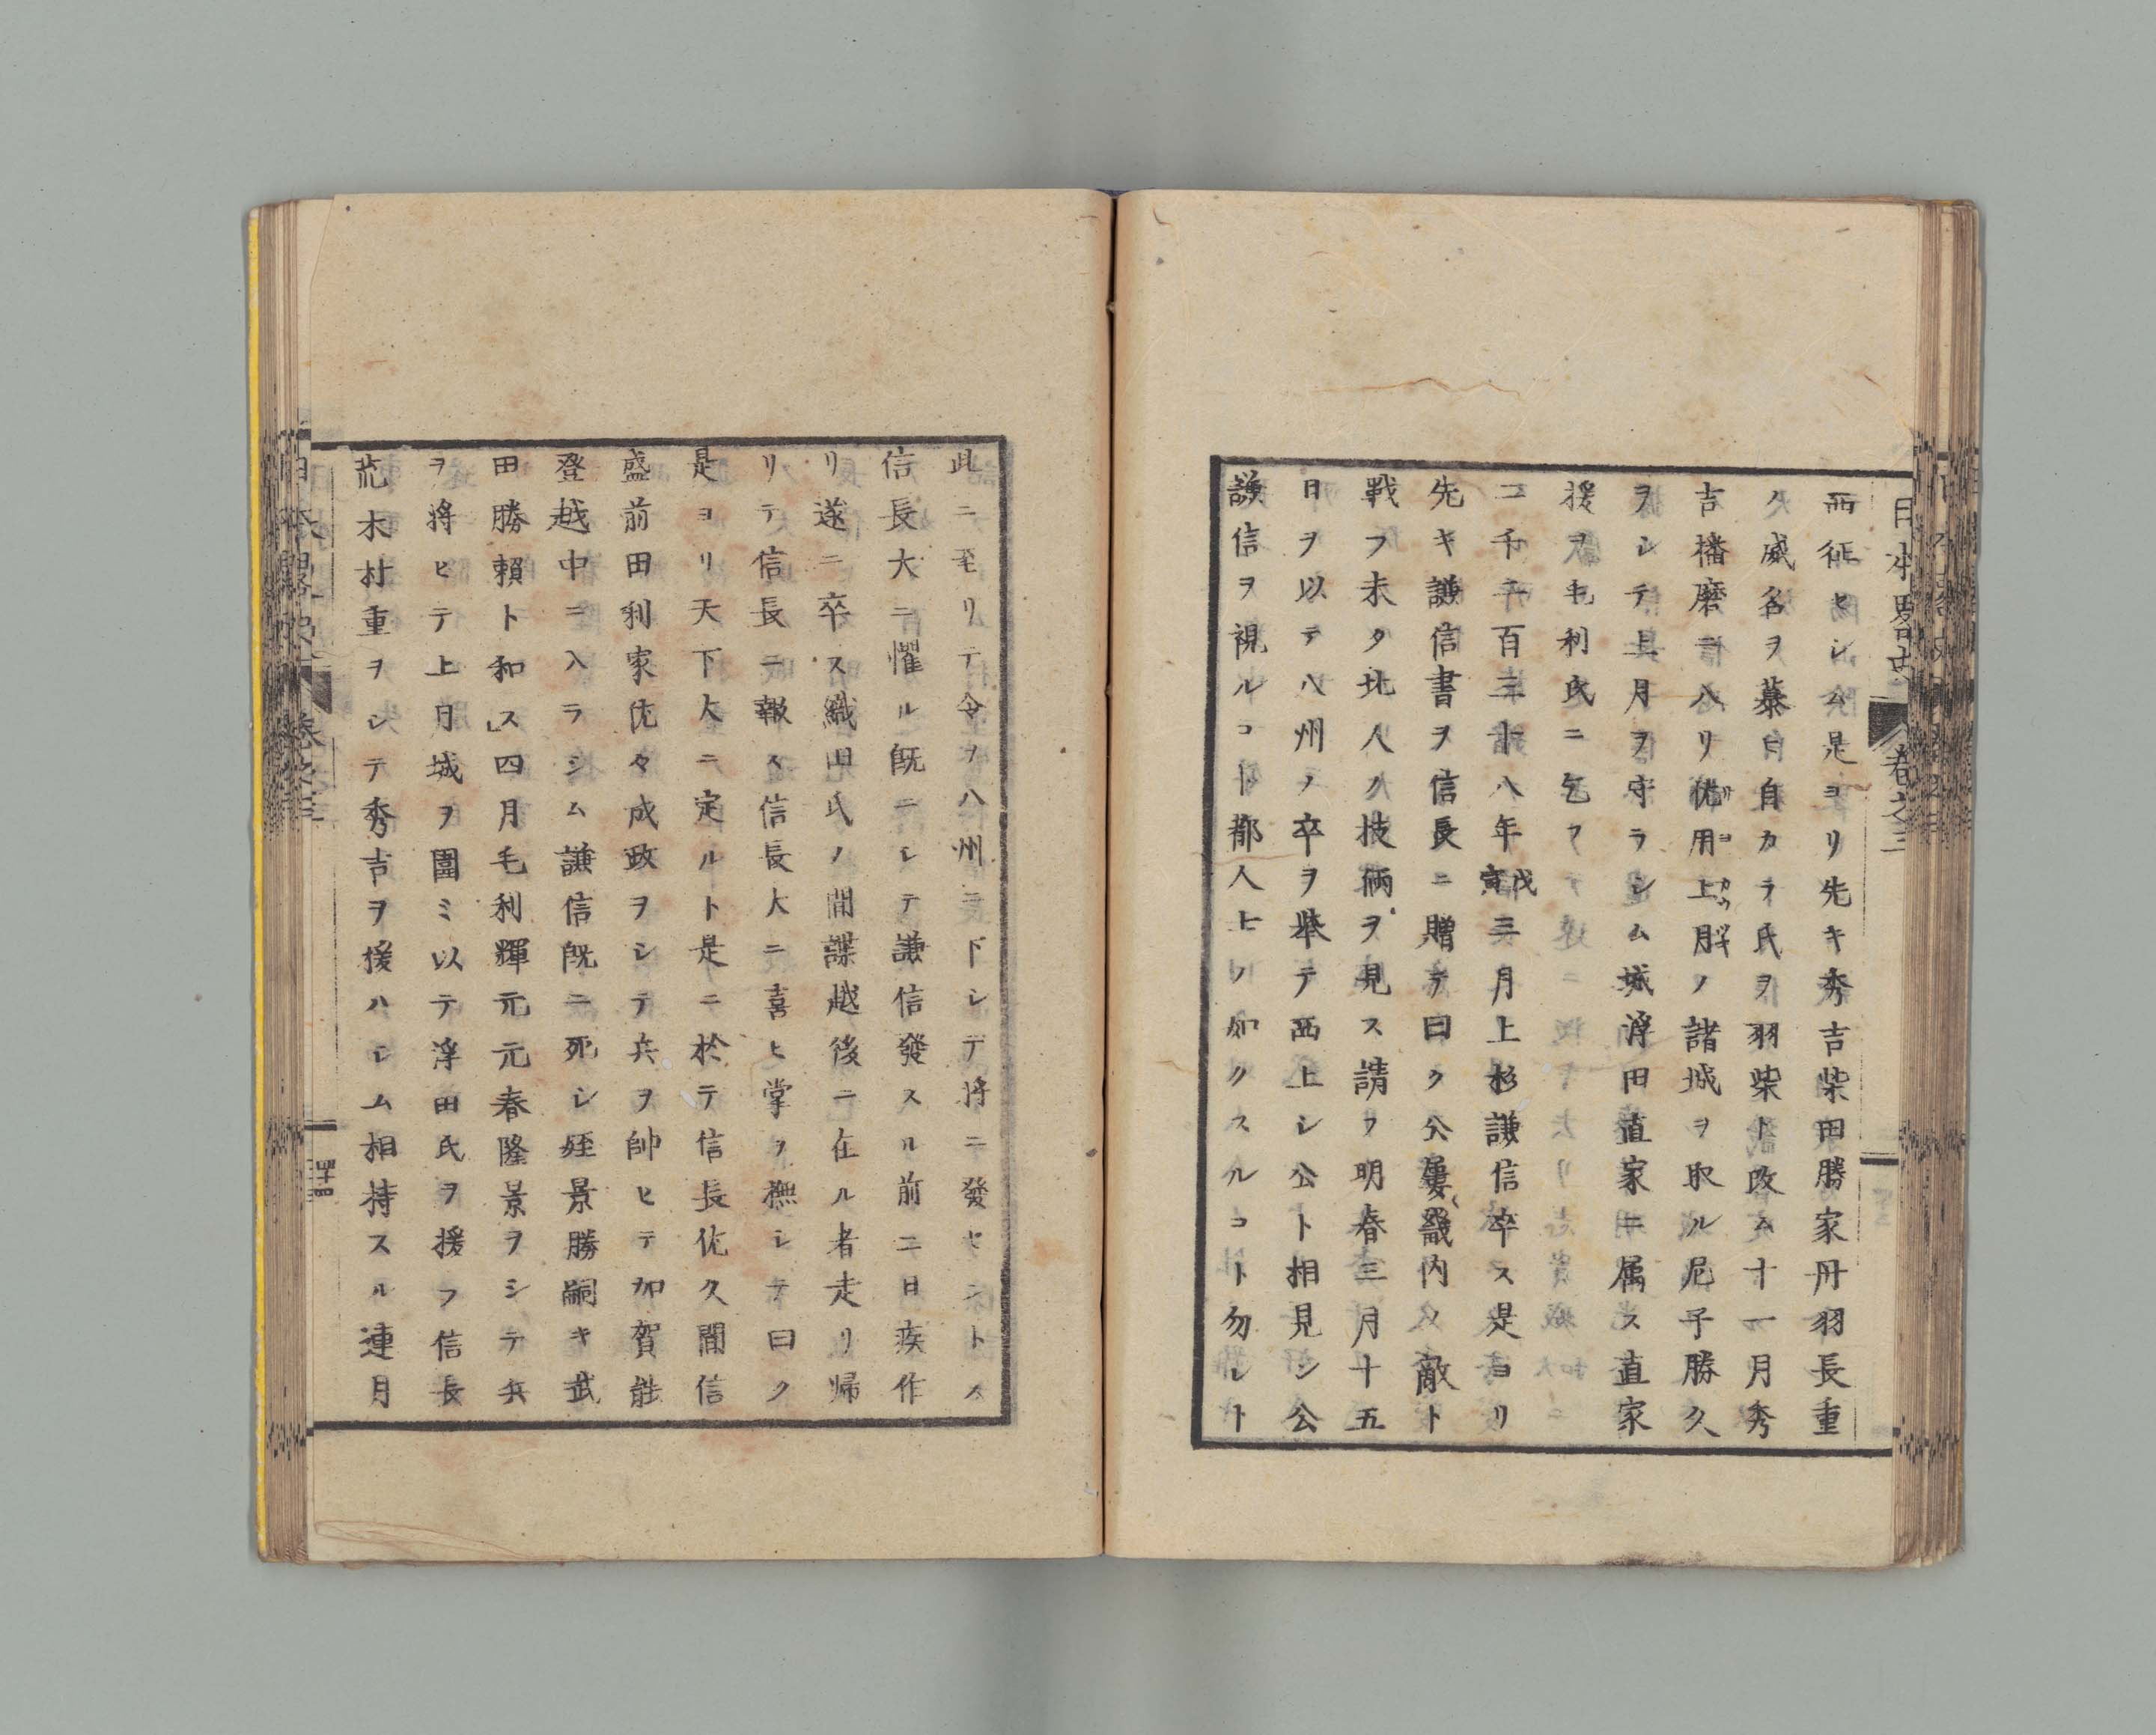 日本畧史 卷之三
西征セシム是ヨリ先キ秀吉柴田勝家丹羽長重
ノ威名ヲ慕ヒ自カラ氏ヲ羽柴ト改ム十一月秀
吉播磨ニ入リ佐用上月ノ諸城ヲ取ル尼子勝久
ヲシテ上月ヲ守ラシム城浮田直家ニ属ス直家
援ヲ毛利氏ニ乞フ
二千二百三十八年戊寅三月上杉謙信卒ス是ヨリ
先キ謙信書ヲ信長ニ贈テ曰ク公屢〻畿内ノ敵ト
戰フ未タ北人ノ技倆ヲ見ス請フ明春三月十五
日ヲ以テ八州ノ卒ヲ擧テ西上シ公ト相見シ公
謙信ヲ視ルコト都人士ノ如クスルコト勿レト
此ニ至リテ令ヲ八州ニ下シテ將ニ發セントス
信長大ニ懼ル既ニシテ謙信發スル前ニ日疾作
リ遂ニ卒ス織田氏ノ間諜越後ニ在ル者走リ歸
リテ信長ニ報ス信長大ニ喜ヒ掌ヲ撫シテ曰ク
是ヨリ天下大ニ定ルト是ニ於テ信長佐久間信
盛前田利家佐々成政ヲシテ兵ヲ帥ヒテ加賀能
登越中ニ入ラシム謙信既ニ死シ姪景勝嗣キ武
田勝頼ト和ス四月毛利輝元元春隆景ヲシテ兵
ヲ將ヒテ上月城ヲ圍ミ以テ浮田氏ヲ援フ信長
荒木村重ヲシテ秀吉ヲ援ハシム相持スル連月
日本畧史 卷之三
四十四